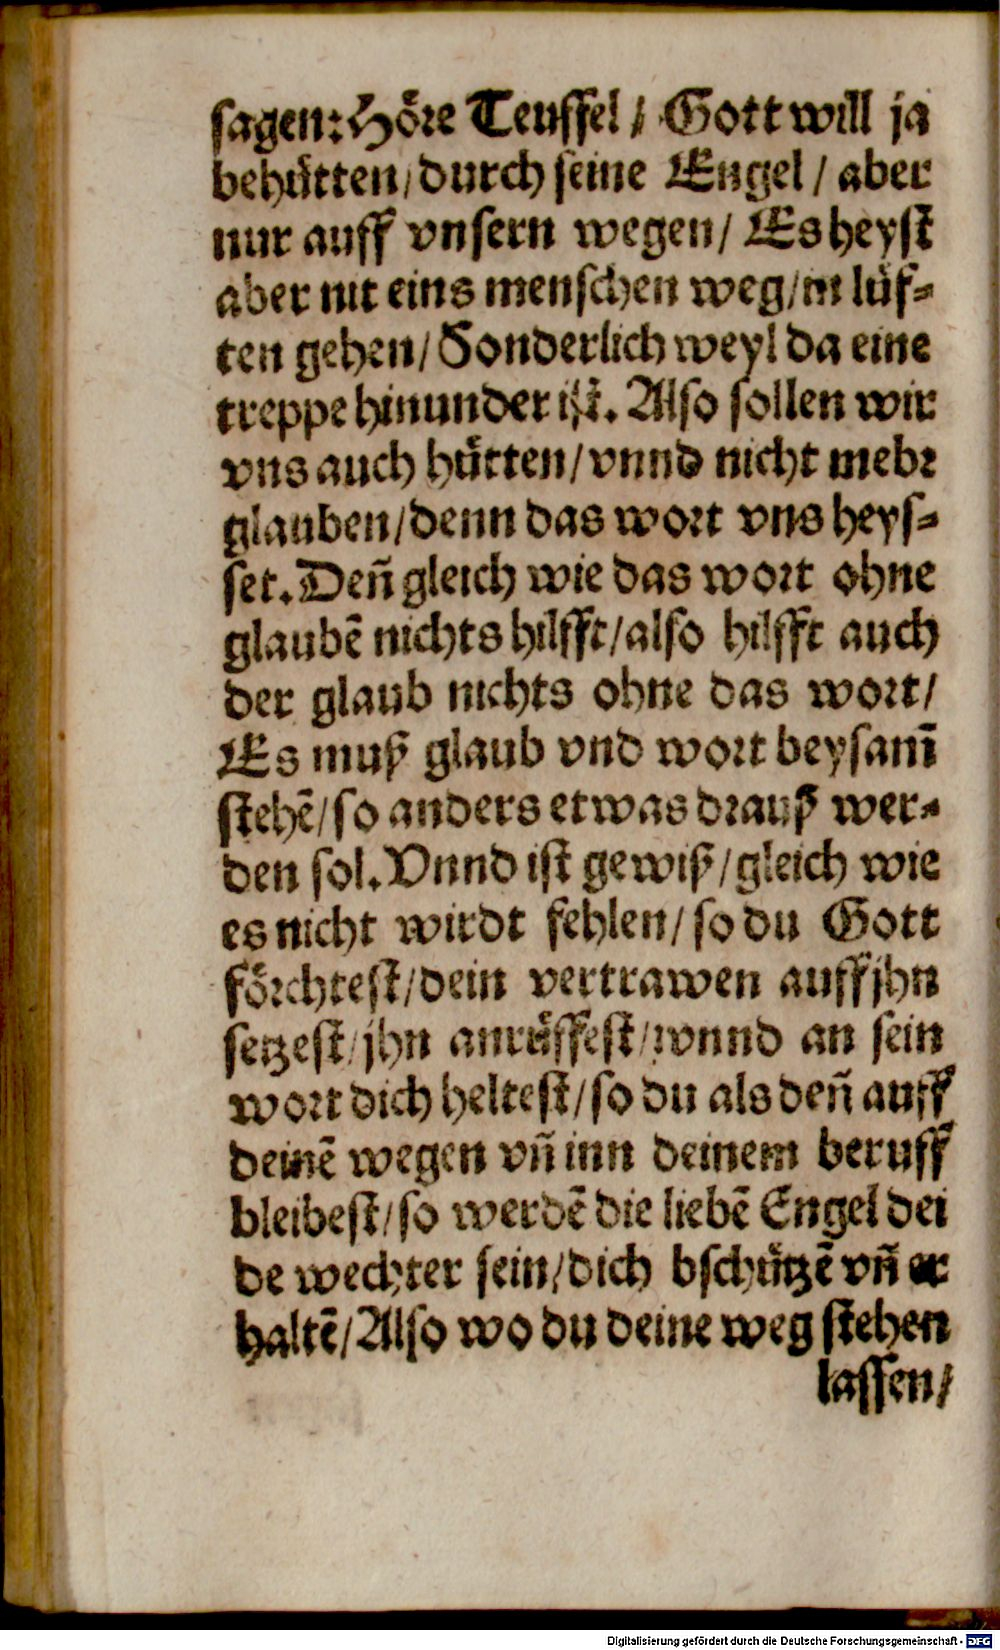 sagen: Höre Teuffel / Gott will ja
behütten / durch seine Engel / aber
nur auff vnsern wegen / Es heyst
aber nit eins menschen weg / in lüf⸗
ten gehen / Sonderlich weyl da eine
treppe hinunder ist. Also sollen wir
vns auch hütten / vnnd nicht mehr
glauben / denn das wort vns heys⸗
set. Deñ gleich wie das wort ohne
glaubē nichts hilfft / also hilfft auch
der glaub nichts ohne das wort /
Es muß glaub vnd wort beysam̄
stehē / so anders etwas drauß wer⸗
den sol. Vnnd ist gewiß / gleich wie
es nicht wirdt fehlen / so du Gott
förchtest / dein vertrawen auff jhn
setzest / jhn anrüffest / vnnd an sein
wort dich heltest / so du als deñ auff
deinē wegen vñ inn deinem beruff
bleibest / so werdē die liebē Engel dei
de wechter sein / dich bschützē vñ er
haltē / Also wo du deine weg stehen
lassen /
Digitalisierung gefördert durch die Deutsche Forschungsgemeinschaft - DFG